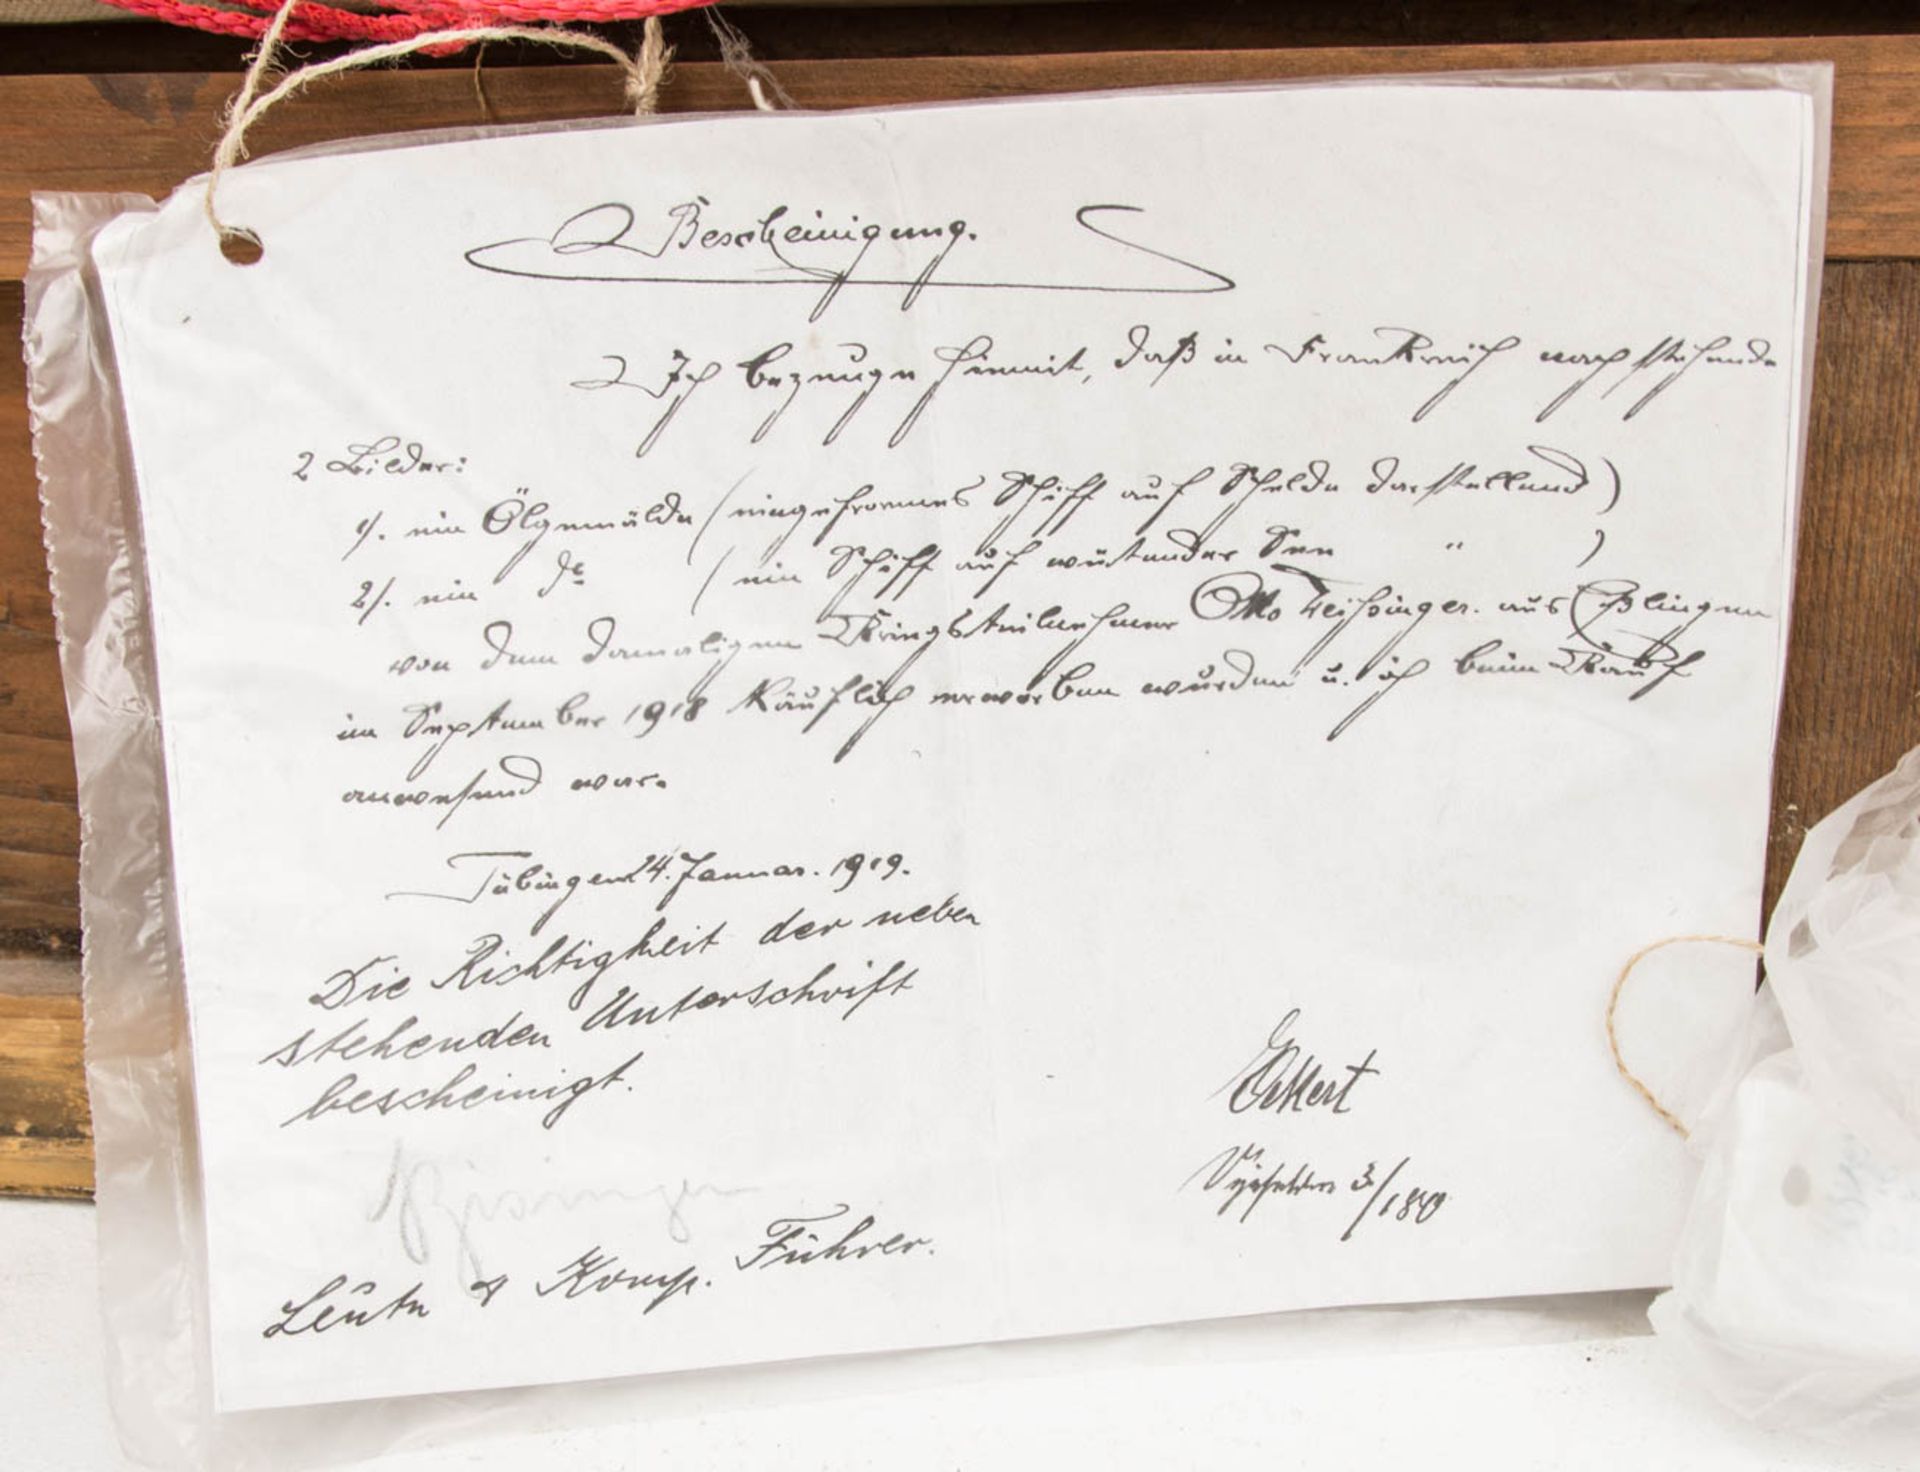 Bescheinigung.
Ich bezeuge hiermit, daß in Frankreich nachstehende
2 Bilder:
1/. ein Ölgemälde (eingefrornes Schiff auf Schelde darstellend)
2/. ein do (ein Schiff auf wütender See " )
von dem damaligen Kriegsteilnehmer Otto aus Eßlingen
im September 1918 käuflich erworben wurden u. ich beim Kauf
anwesend war.
Tübingen 24. Januar. 1919.
Die Richtigkeit der neben
stehenden Unterschrift
bescheinigt.
Eckert
3/180
Leutn & Komp. Führer.